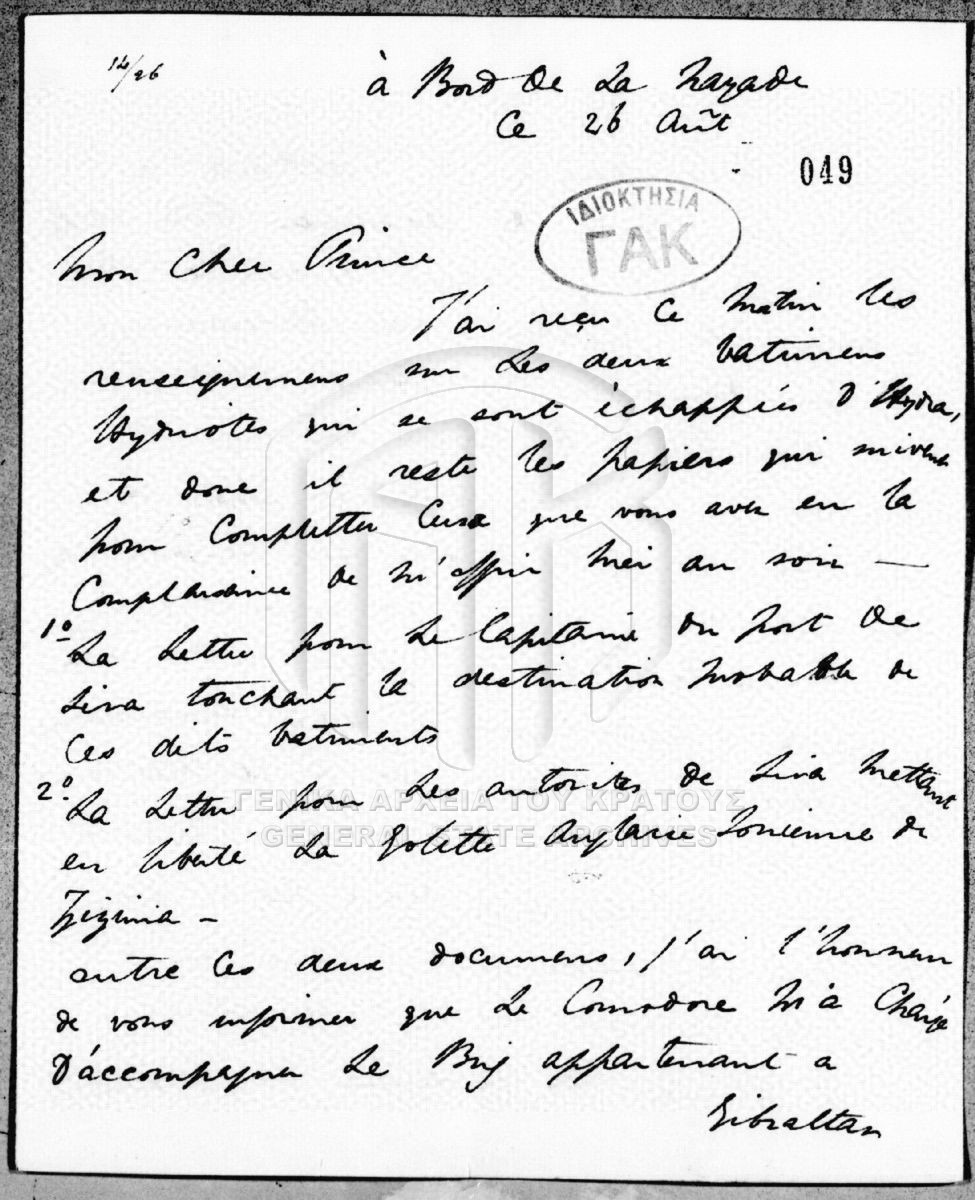 14/26
à Bord de La Nayade
Ce 26 Août
049
ΙΔΙΟΚΤΗΣΙΑ
ΓΑΚ
Mon Cher Prince
J'ai reçu Ce Matin les
renseignemens sur Les deux batimens
Hydriotes qui se sont échappées d'Hydra,
et donc il reste les papiers qui suivent
pour Completter Ceux que vous avez eu la
Complaisance de M'offrir hier au soir —
1º La Lettre pour Le Capitaine du port de
Sira touchant la destination probable de
Ces dits batiments
2º La Lettre pour Les autorités de Sira Mettant
ΓΕΝΙΚΑ ΑΡΧΕΙΑ ΤΟΥ ΚΡΑΤΟΥΣ
GENERAL STATE ARCHIVES
en liberté La Golette Anglaise Ionienne de
Zizinia —
outre Ces deux documens, J'ai l'honneur
de vous informer que Le Comodore M'a Chargé
D'accompagner Le Brig appartenant a
Gibraltar